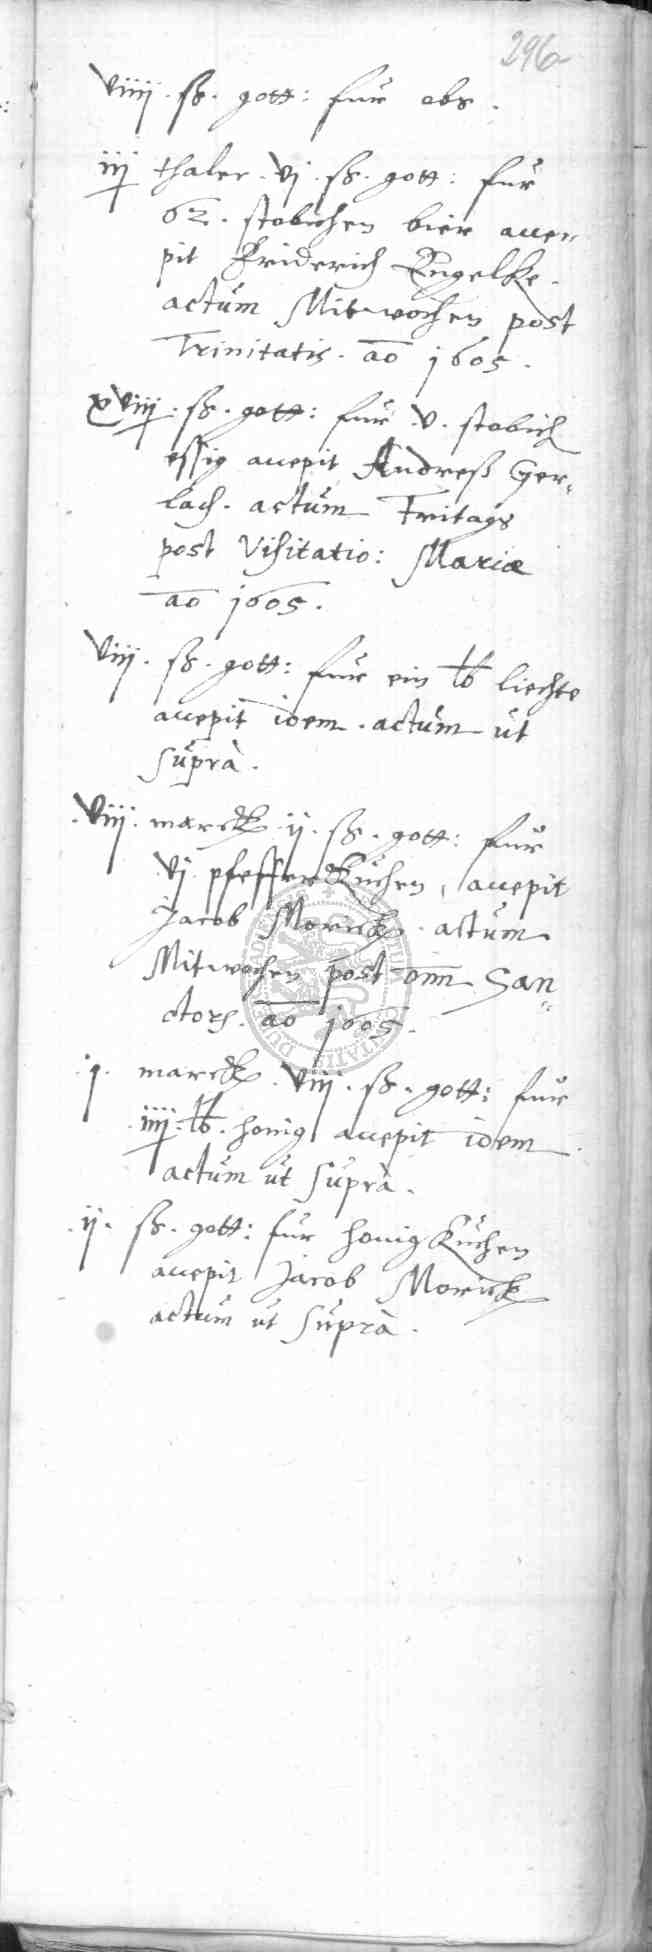 296
viiij. ß. gott: fur obs.
iij thaler. vj. ß. gott: fur
62. stobichen bier acce=
pit Friderich Engelke.
actum Mitwochen post
Trinitatis. ao 1605.
xviij: ß. gott: fur .v. stobich
essig accepit Andreß Ger=
lach. actum Fritags
post Visitatio: Mariæ
ao 1605.
viij. ß. gott: fur ein lb liechte
accepit idem. actum ut
suprà.
viij. marck ij. ß. gott: fur
vj pfefferkuchen, accepit
Jacob Morick. actum
Mitwochen post om̄ San=
ctorʒ. ao 1605.
j. marck. viij. ß. gott: fur
iiij. lb. honig accepit idem
actum ut suprà.
ij. ß. gott: fur honigkuchen
accepit Jacob Morick
actum ut suprà.